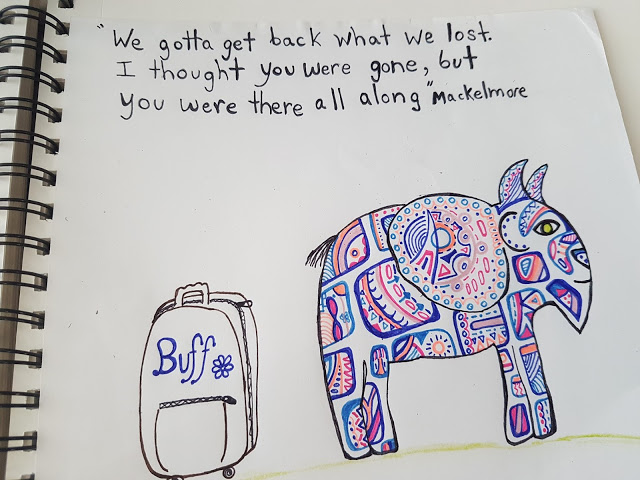 "We gotta get back what we lost.
I thought you were gone, but
you were there all along" Mackelmore
Buff